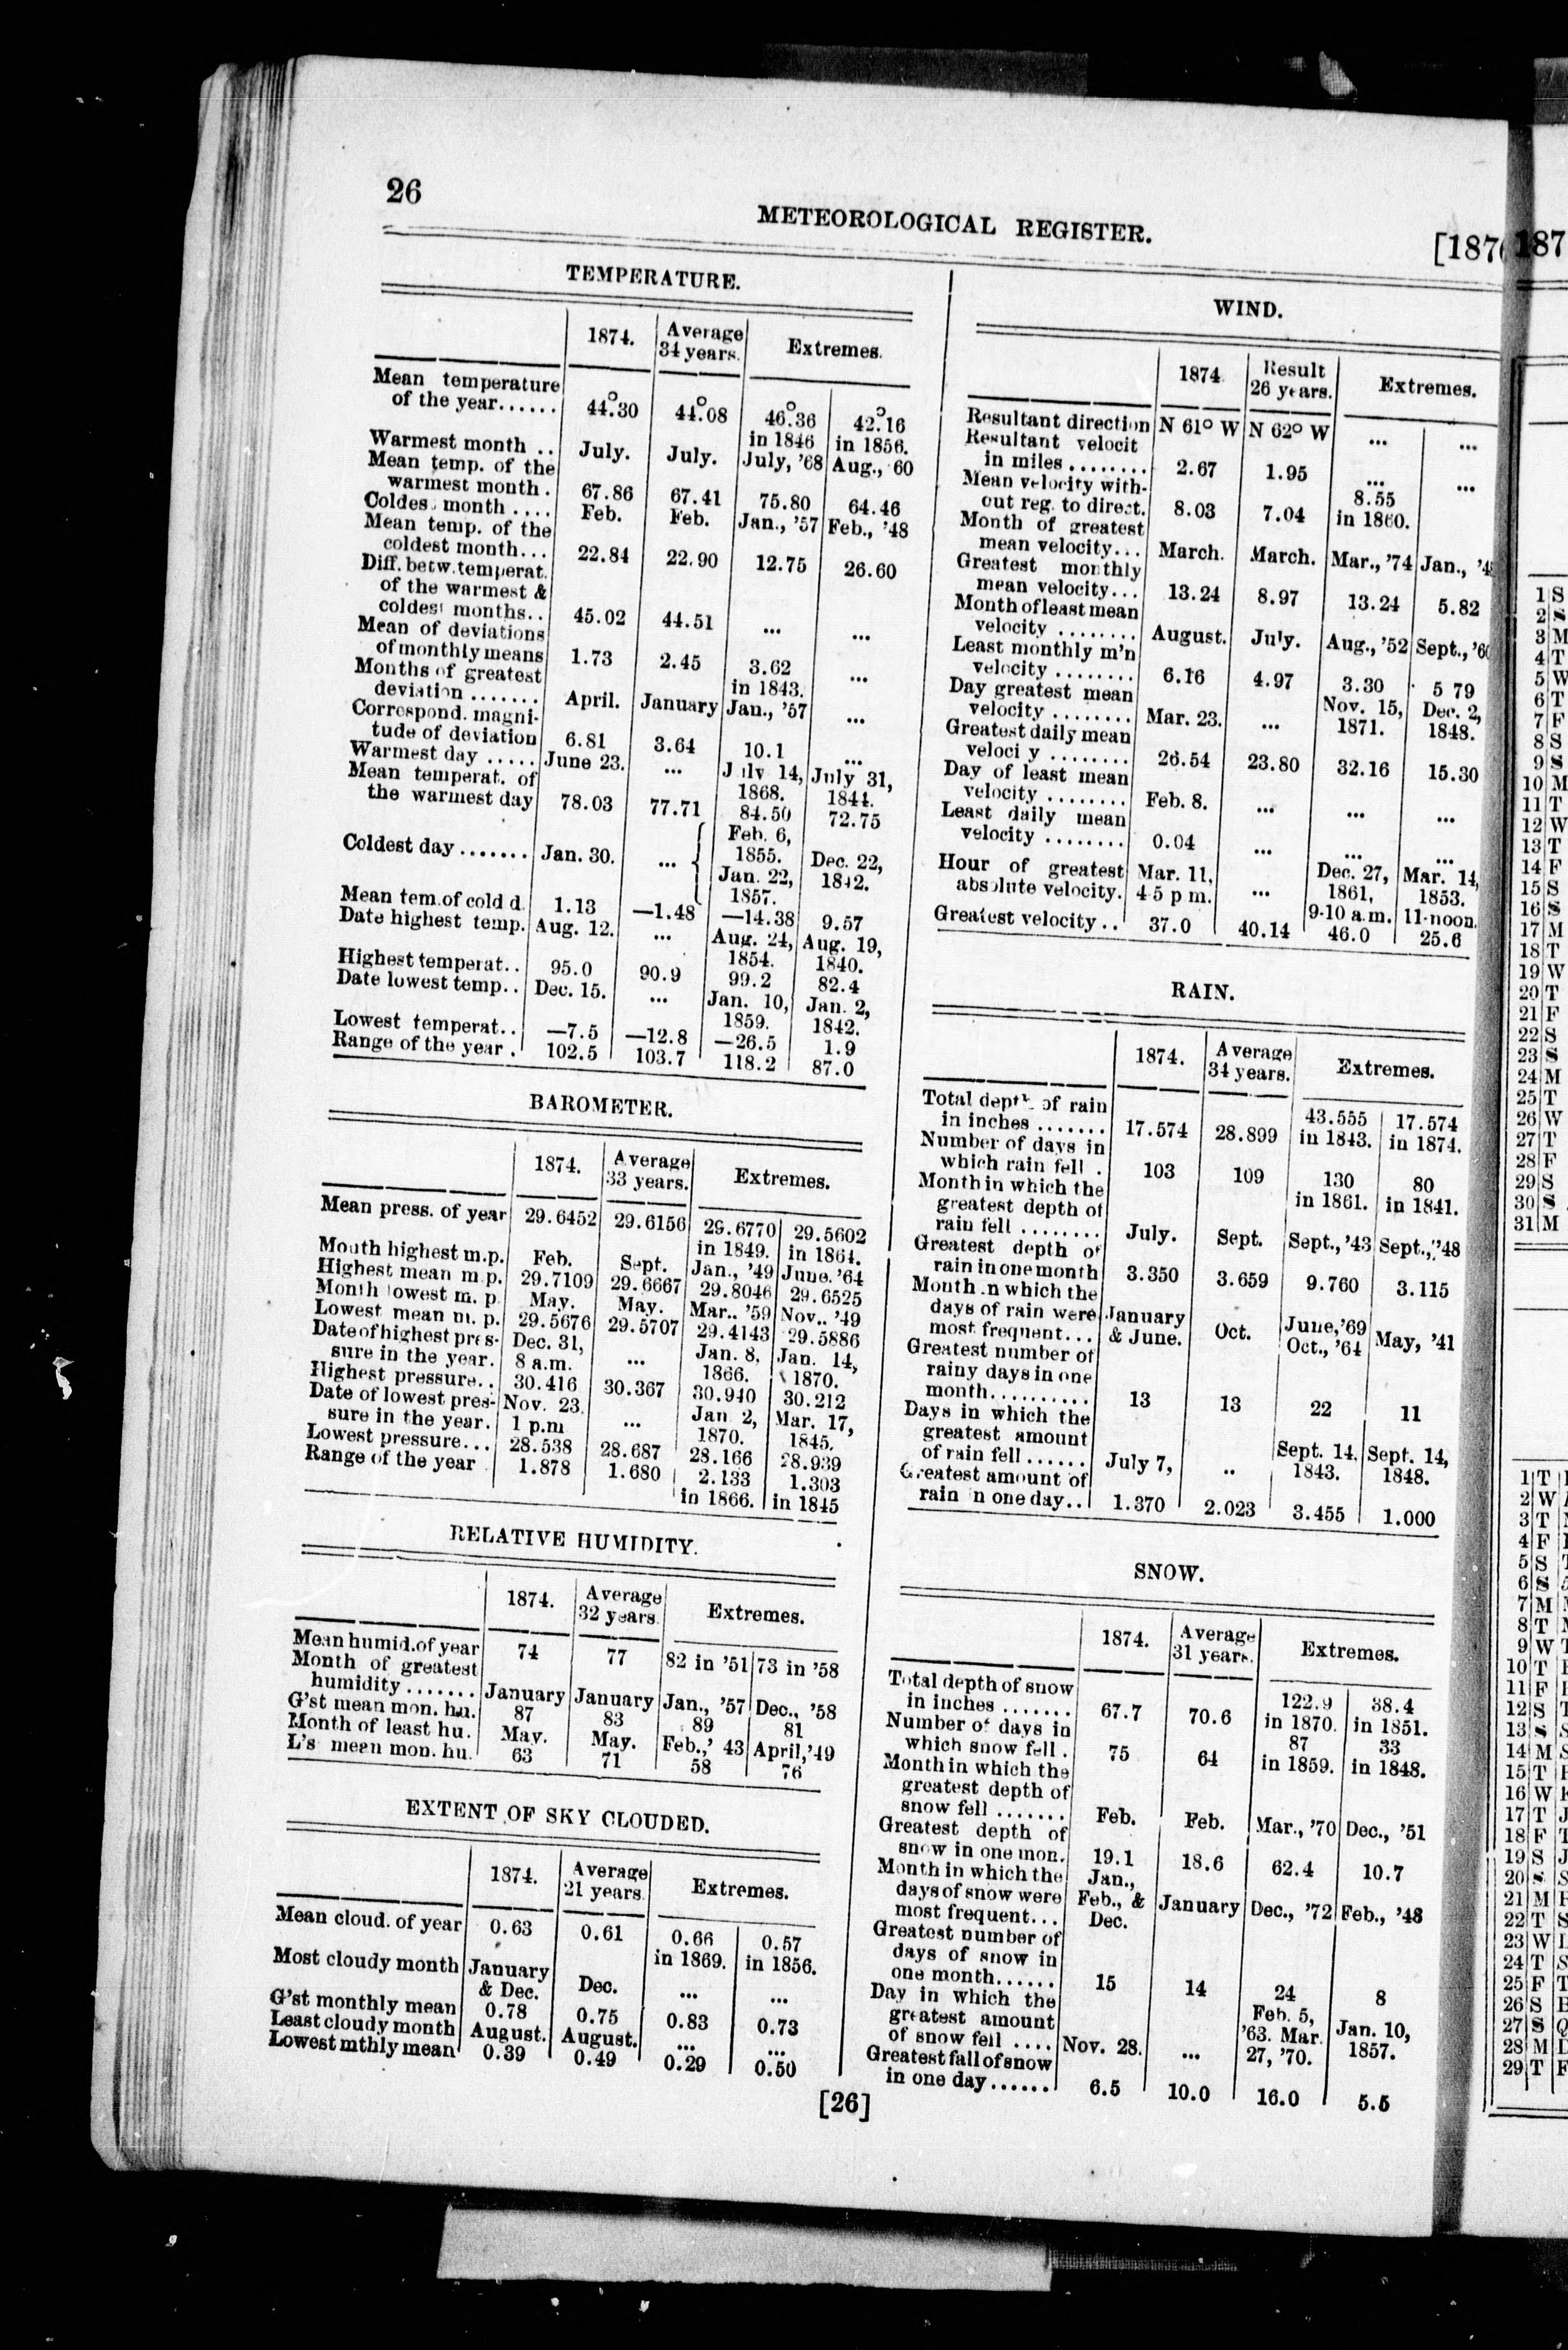 26
METEOROLOGICAL REGISTER.
[187
TEMPERATURE.
1874. Average 34 years. Extremes.
Mean temperature
of the year...... 44°.30 44°.08 46°.36 42°.16
in 1846 in 1856.
Warmest month .. July. July. July, '68 Aug., 60
Mean temp. of the
warmest month. 67.86 67.41 75.80 64.46
Coldes month .... Feb. Feb. Jan., '57 Feb., '48
Mean temp. of the
coldest month... 22.84 22.90 12.75 26.60
Diff. betw. temperat.
of the warmest &
coldest months.. 45.02 44.51 ... ...
Mean of deviations
of monthly means 1.73 2.45 3.62 ...
in 1843.
Months of greatest
deviation ....... April. January Jan., '57 ...
Correspond. magni-
tude of deviation 6.81 3.64 10.1 ...
Warmest day ..... June 23. ... July 14, July 31,
1868. 1844.
Mean temperat. of
the warmest day 78.03 77.71 84.50 72.75
Coldest day ....... Jan. 30. ... { Feb. 6,
1855. Dec. 22,
Jan. 22, 1842.
1857.
Mean tem. of cold d. 1.13 —1.48 —14.38 9.57
Date highest temp. Aug. 12. ... Aug. 24, Aug. 19,
1854. 1840.
Highest temperat.. 95.0 90.9 99.2 82.4
Date lowest temp.. Dec. 15. ... Jan. 10, Jan. 2,
1859. 1842.
Lowest temperat.. —7.5 —12.8 —26.5 1.9
Range of the year . 102.5 103.7 118.2 87.0
BAROMETER.
1874. Average 33 years. Extremes.
Mean press. of year 29.6452 29.6156 29.6770 29.5602
in 1849. in 1864.
Month highest m.p. Feb. Sept. Jan., '49 June. '64
Highest mean m.p. 29.7109 29.6667 29.8046 29.6525
Month lowest m. p. May. May. Mar.. '59 Nov.. '49
Lowest mean m. p. 29.5676 29.5707 29.4143 29.5886
Date of highest pres- Dec. 31, Jan. 8, Jan. 14,
sure in the year. 8 a.m. ... 1866. 1870.
Highest pressure.. 30.416 30.367 30.940 30.212
Date of lowest pres- Nov. 23. Jan 2, Mar. 17,
sure in the year. 1 p.m ... 1870. 1845.
Lowest pressure... 28.538 28.687 28.166 28.939
Range of the year 1.878 1.680 2.133 1.303
in 1866. in 1845
RELATIVE HUMIDITY.
1874. Average 32 years. Extremes.
Mean humid. of year 74 77 82 in '51 73 in '58
Month of greatest
humidity ....... January January Jan., '57 Dec., '58
G'st mean mon. hu. 87 83 89 81
Month of least hu. May. May. Feb.,' 43 April,'49
L's mean mon. hu. 63 71 58 76
EXTENT OF SKY CLOUDED.
1874. Average 21 years. Extremes.
Mean cloud. of year 0.63 0.61 0.66 0.57
in 1869. in 1856.
Most cloudy month January
& Dec. Dec. ... ...
G'st monthly mean 0.78 0.75 0.83 0.73
Least cloudy month August. August. ... ...
Lowest mthly mean 0.39 0.49 0.29 0.50
WIND.
1874 Result 26 years. Extremes.
Resultant direction N 61° W N 62° W ... ...
Resultant velocit
in miles ........ 2.67 1.95 ... ...
Mean velocity with-
out reg. to direct. 8.03 7.04 8.55
in 1860.
Month of greatest
mean velocity... March. March. Mar., '74 Jan., '4
Greatest monthly
mean velocity... 13.24 8.97 13.24 5.82
Month of least mean
velocity ........ August. July. Aug., '52 Sept., '6
Least monthly m'n
velocity ........ 6.16 4.97 3.30 5 79
Day greatest mean
velocity ........ Mar. 23. ... Nov. 15, Dec. 2,
1871. 1848.
Greatest daily mean
veloci y ........ 26.54 23.80 32.16 15.30
Day of least mean
velocity ........ Feb. 8. ... ... ...
Least daily mean
velocity ........ 0.04 ... ... ...
Hour of greatest Mar. 11, Dec. 27, Mar. 14,
absolute velocity. 4 5 p m. ... 1861, 1853.
9-10 a.m. 11-noon.
Greatest velocity .. 37.0 40.14 46.0 25.6
RAIN.
1874. Average 34 years. Extremes.
Total depth of rain
in inches ....... 17.574 28.899 43.555 17.574
in 1843. in 1874.
Number of days in
which rain fell . 103 109 130 80
in 1861. in 1841.
Month in which the
greatest depth of
rain fell ........ July. Sept. Sept., '43 Sept., '48
Greatest depth of
rain in one month 3.350 3.659 9.760 3.115
Month .n which the
days of rain were January June,'69
most frequent... & June. Oct. Oct., '64 May, '41
Greatest number of
rainy days in one
month.......... 13 13 22 11
Days in which the
greatest amount
of rain fell ...... July 7, .. Sept. 14, Sept. 14,
1843. 1848.
Greatest amount of
rain n one day.. 1.370 2.023 3.455 1.000
SNOW.
1874. Average 31 years. Extremes.
Total depth of snow
in inches ....... 67.7 70.6 122.9 38.4
in 1870. in 1851.
Number of days in
which snow fell . 75 64 87 33
in 1859. in 1848.
Month in which the
greatest depth of
snow fell ....... Feb. Feb. Mar., '70 Dec., '51
Greatest depth of
snow in one mon. 19.1 18.6 62.4 10.7
Month in which the Jan.,
days of snow were Feb., & January Dec., '72 Feb., '48
most frequent... Dec.
Greatest number of
days of snow in
one month...... 15 14 24 8
Day in which the
greatest amount Feb. 5,
of snow fell .... Nov. 28. ... '63. Mar. Jan. 10,
27, '70. 1857.
Greatest fall of snow
in one day...... 6.5 10.0 16.0 5.5
[26]
187
1 S
2 S
3 M
4 T
5 W
6 T
7 F
8 S
9 S
10 M
11 T
12 W
13 T
14 F
15 S
16 S
17 M
18 T
19 W
20 T
21 F
22 S
23 S
24 M
25 T
26 W
27 T
28 F
29 S
30 S
31 M
1 T
2 W
3 T
4 F
5 S
6 S
7 M
8 T
9 W
10 T
11 F
12 S
13 S
14 M
15 T
16 W
17 T
18 F
19 S
20 S
21 M
22 T
23 W
24 T
25 F
26 S
27 S
28 M
29 T